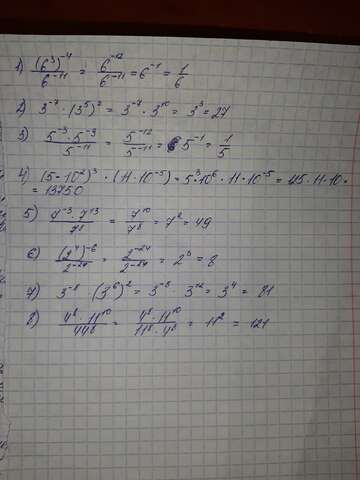 1) (6³)⁻⁴ / 6⁻¹¹ = 6⁻¹² / 6⁻¹¹ = 6⁻¹ = 1/6
2) 3⁻⁷ · (3⁵)² = 3⁻⁷ · 3¹⁰ = 3³ = 27
3) 5⁻³ · 5⁻⁹ / 5⁻¹¹ = 5⁻¹² / 5⁻¹¹ = 5⁻¹ = 1/5
4) (5 · 10²)³ · (11 · 10⁻⁵) = 5³ · 10⁶ · 11 · 10⁻⁵ = 125 · 11 · 10 =
= 13750
5) 7⁻³ · 7¹³ / 7⁸ = 7¹⁰ / 7⁸ = 7² = 49
6) (2⁴)⁻⁶ / 2⁻²⁷ = 2⁻²⁴ / 2⁻²⁷ = 2³ = 8
7) 3⁻⁸ · (3⁶)² = 3⁻⁸ · 3¹² = 3⁴ = 81
8) 4⁸ · 11¹⁰ / 44⁸ = 4⁸ · 11¹⁰ / 11⁸ · 4⁸ = 11² = 121